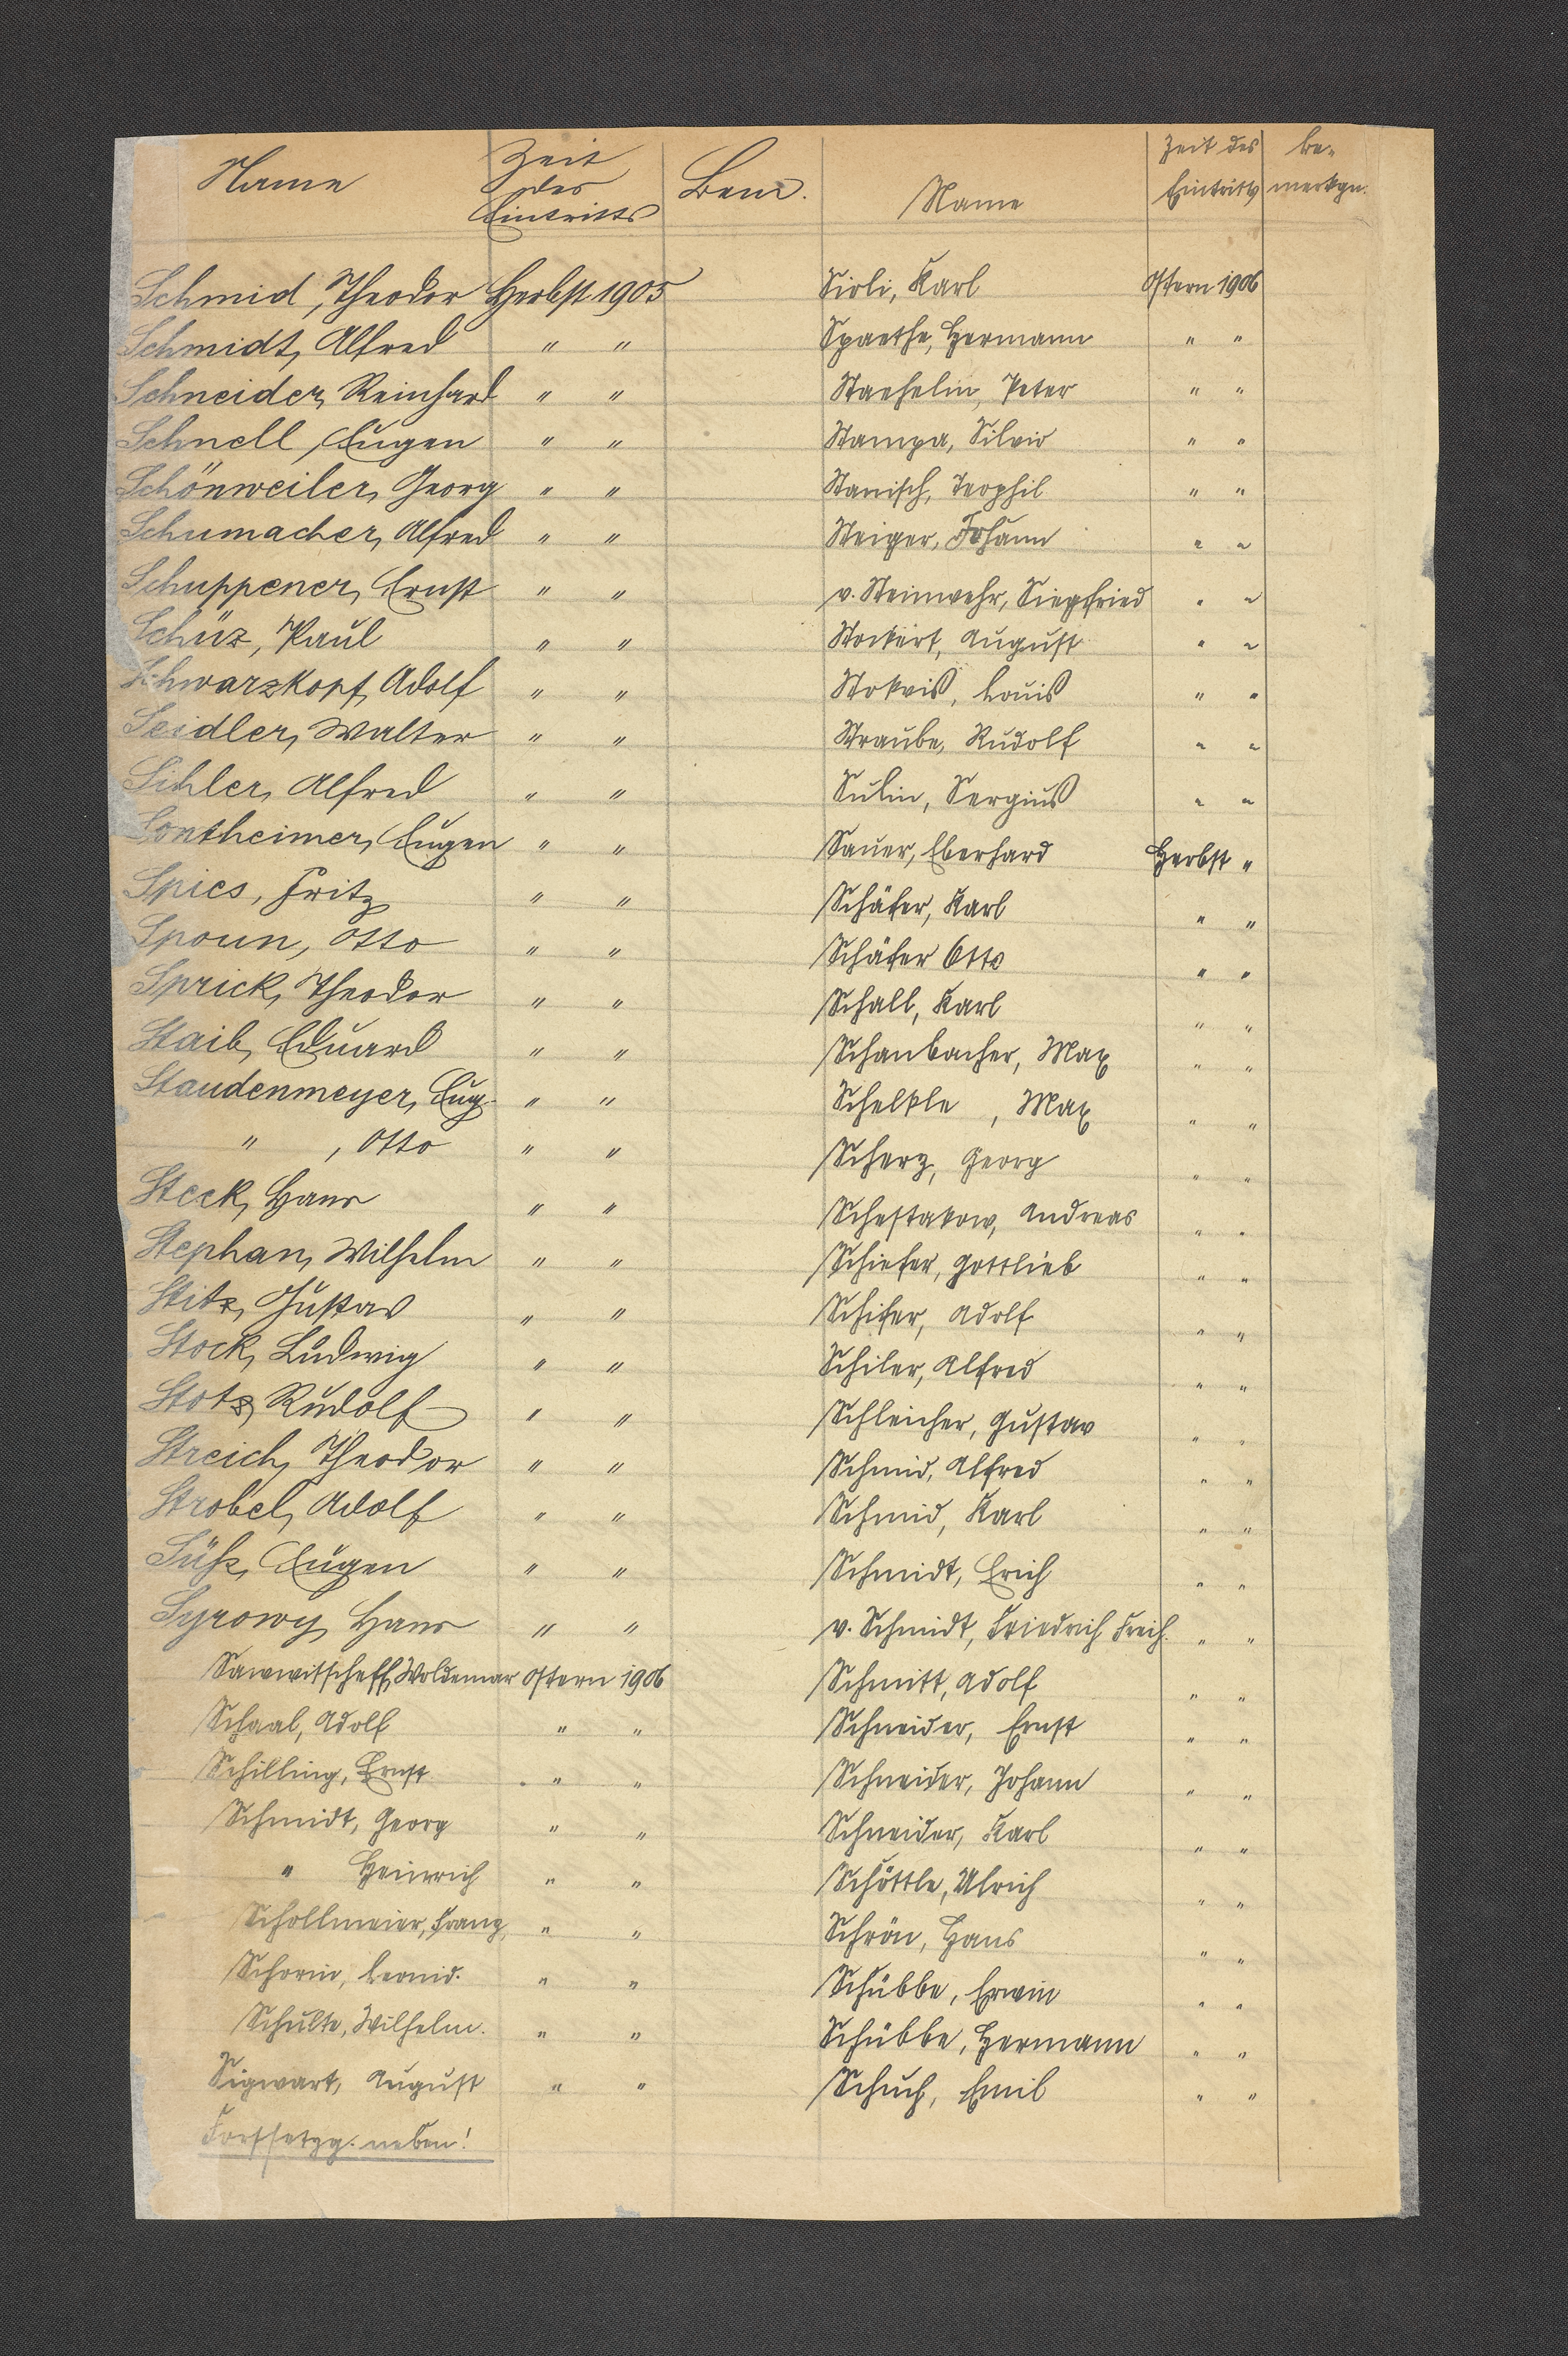 Name Zeit des Eintritts Bem.
Schmid, Theodor Herbst 1905
Schmidt, Alfred " "
Schneider, Reinhard " "
Schnell, Eugen " "
Schönweiler, Georg " "
Schumacher, Alfred " "
Schuppener, Ernst " "
Schüz, Paul " "
Schwarzkopf, Adolf " "
Seidler, Walter " "
Sihler, Alfred " "
Sontheimer, Eugen " "
Spies, Fritz " "
Spoun, Otto " "
Sprick, Theodor " "
Staib, Eduard " "
Staudenmeyer, Eug. " "
" , Otto " "
Steck, Hans " "
Stephan, Wilhelm " "
Stitz, Gustav " "
Stock, Ludwig " "
Stotz, Rudolf " "
Streich, Theodor " "
Strobel, Adolf " "
Süß, Eugen " "
Syrowy, Hans " "
Sawwitscheff, Woldemar Ostern 1906
Schaal, Adolf " "
Schilling, Ernst " "
Schmidt, Georg " "
" Heinrich " "
Schollmeier, Franz, " "
Schorin, Leonid. " "
Schulte, Wilhelm. " "
Sigwart, August " "
Fortsetzg. neben!
Name Zeit des Eintritts Be- merkgn.
Sirli, Karl Ostern 1906
Spaethe, Hermann " "
Staehelin, Peter " "
Stampa, Silvio " "
Stanisch, Teophil " "
Steiger, Johann " "
v. Steinwehr, Siegfried " "
Stockert, August " "
Stokvis, Louis " "
Straube, Rudolf " "
Sulin, Sergius " "
Sauer, Eberhard Herbst "
Schäfer, Karl " "
Schäfer Otto " "
Schall, Karl " "
Schanbacher, Max " "
Schelkle , Max " "
Scherz, Georg " "
Schestakow, Andreas " "
Schiefer, Gottlieb " "
Schifer, Adolf " "
Schiler, Alfred " "
Schleicher, Gustav " "
Schmid, Alfred " "
Schmid, Karl " "
Schmidt, Erich " "
v. Schmidt, Friedrich Freih. " "
Schmitt, Adolf " "
Schneider, Ernst " "
Schneider, Johann " "
Schneider, Karl " "
Schöttle, Ulrich " "
Schrön, Hans " "
Schübbe, Erwin " "
Schübbe, Hermann " "
Schuch, Emil " "